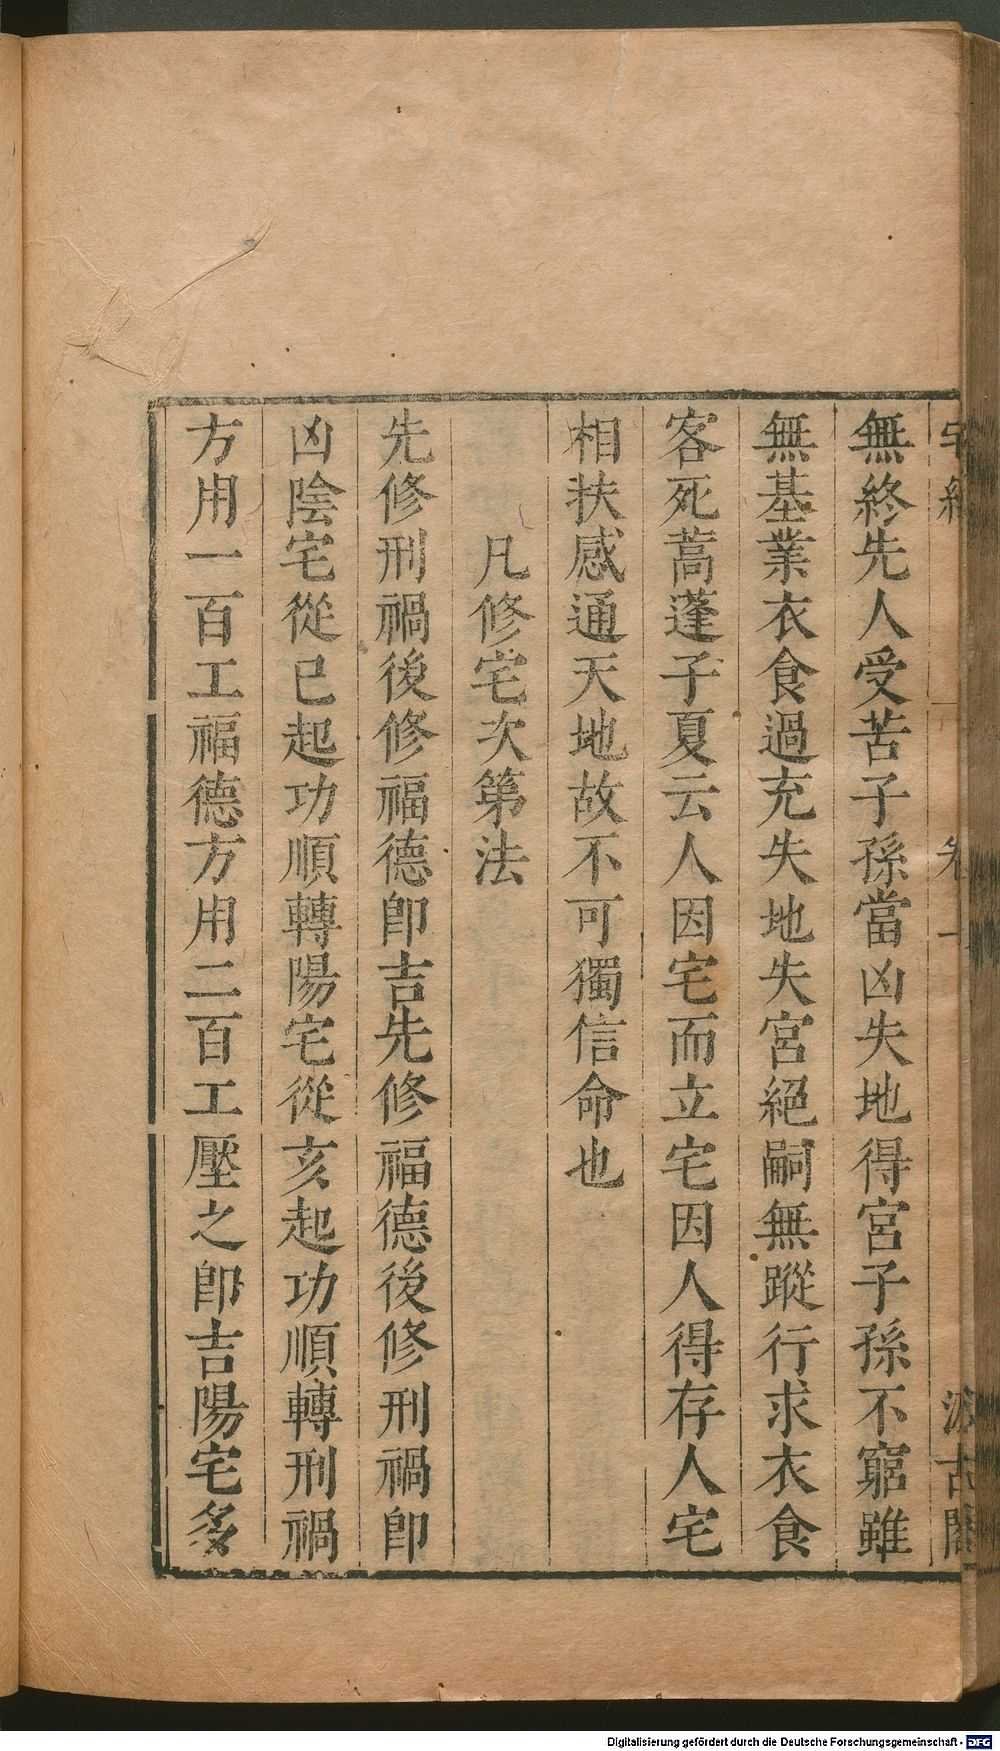 無終先人受苦子孫當凶失地得宮子孫不窮雖
無基業衣食過充失地失宮絕嗣無蹤行求衣食
客死蒿蓬子夏云人因宅而立宅因人得存人宅
相扶感通天地故不可獨信命也
凡修宅次第法
先修刑禍後修福德即吉先修福德後修刑禍即
凶陰宅從巳起功順轉陽宅從亥起功順轉刑禍
方用一百工福德方用二百工壓之即吉陽宅多
Digitalisierung gefördert durch die Deutsche Forschungsgemeinschaft - DFG